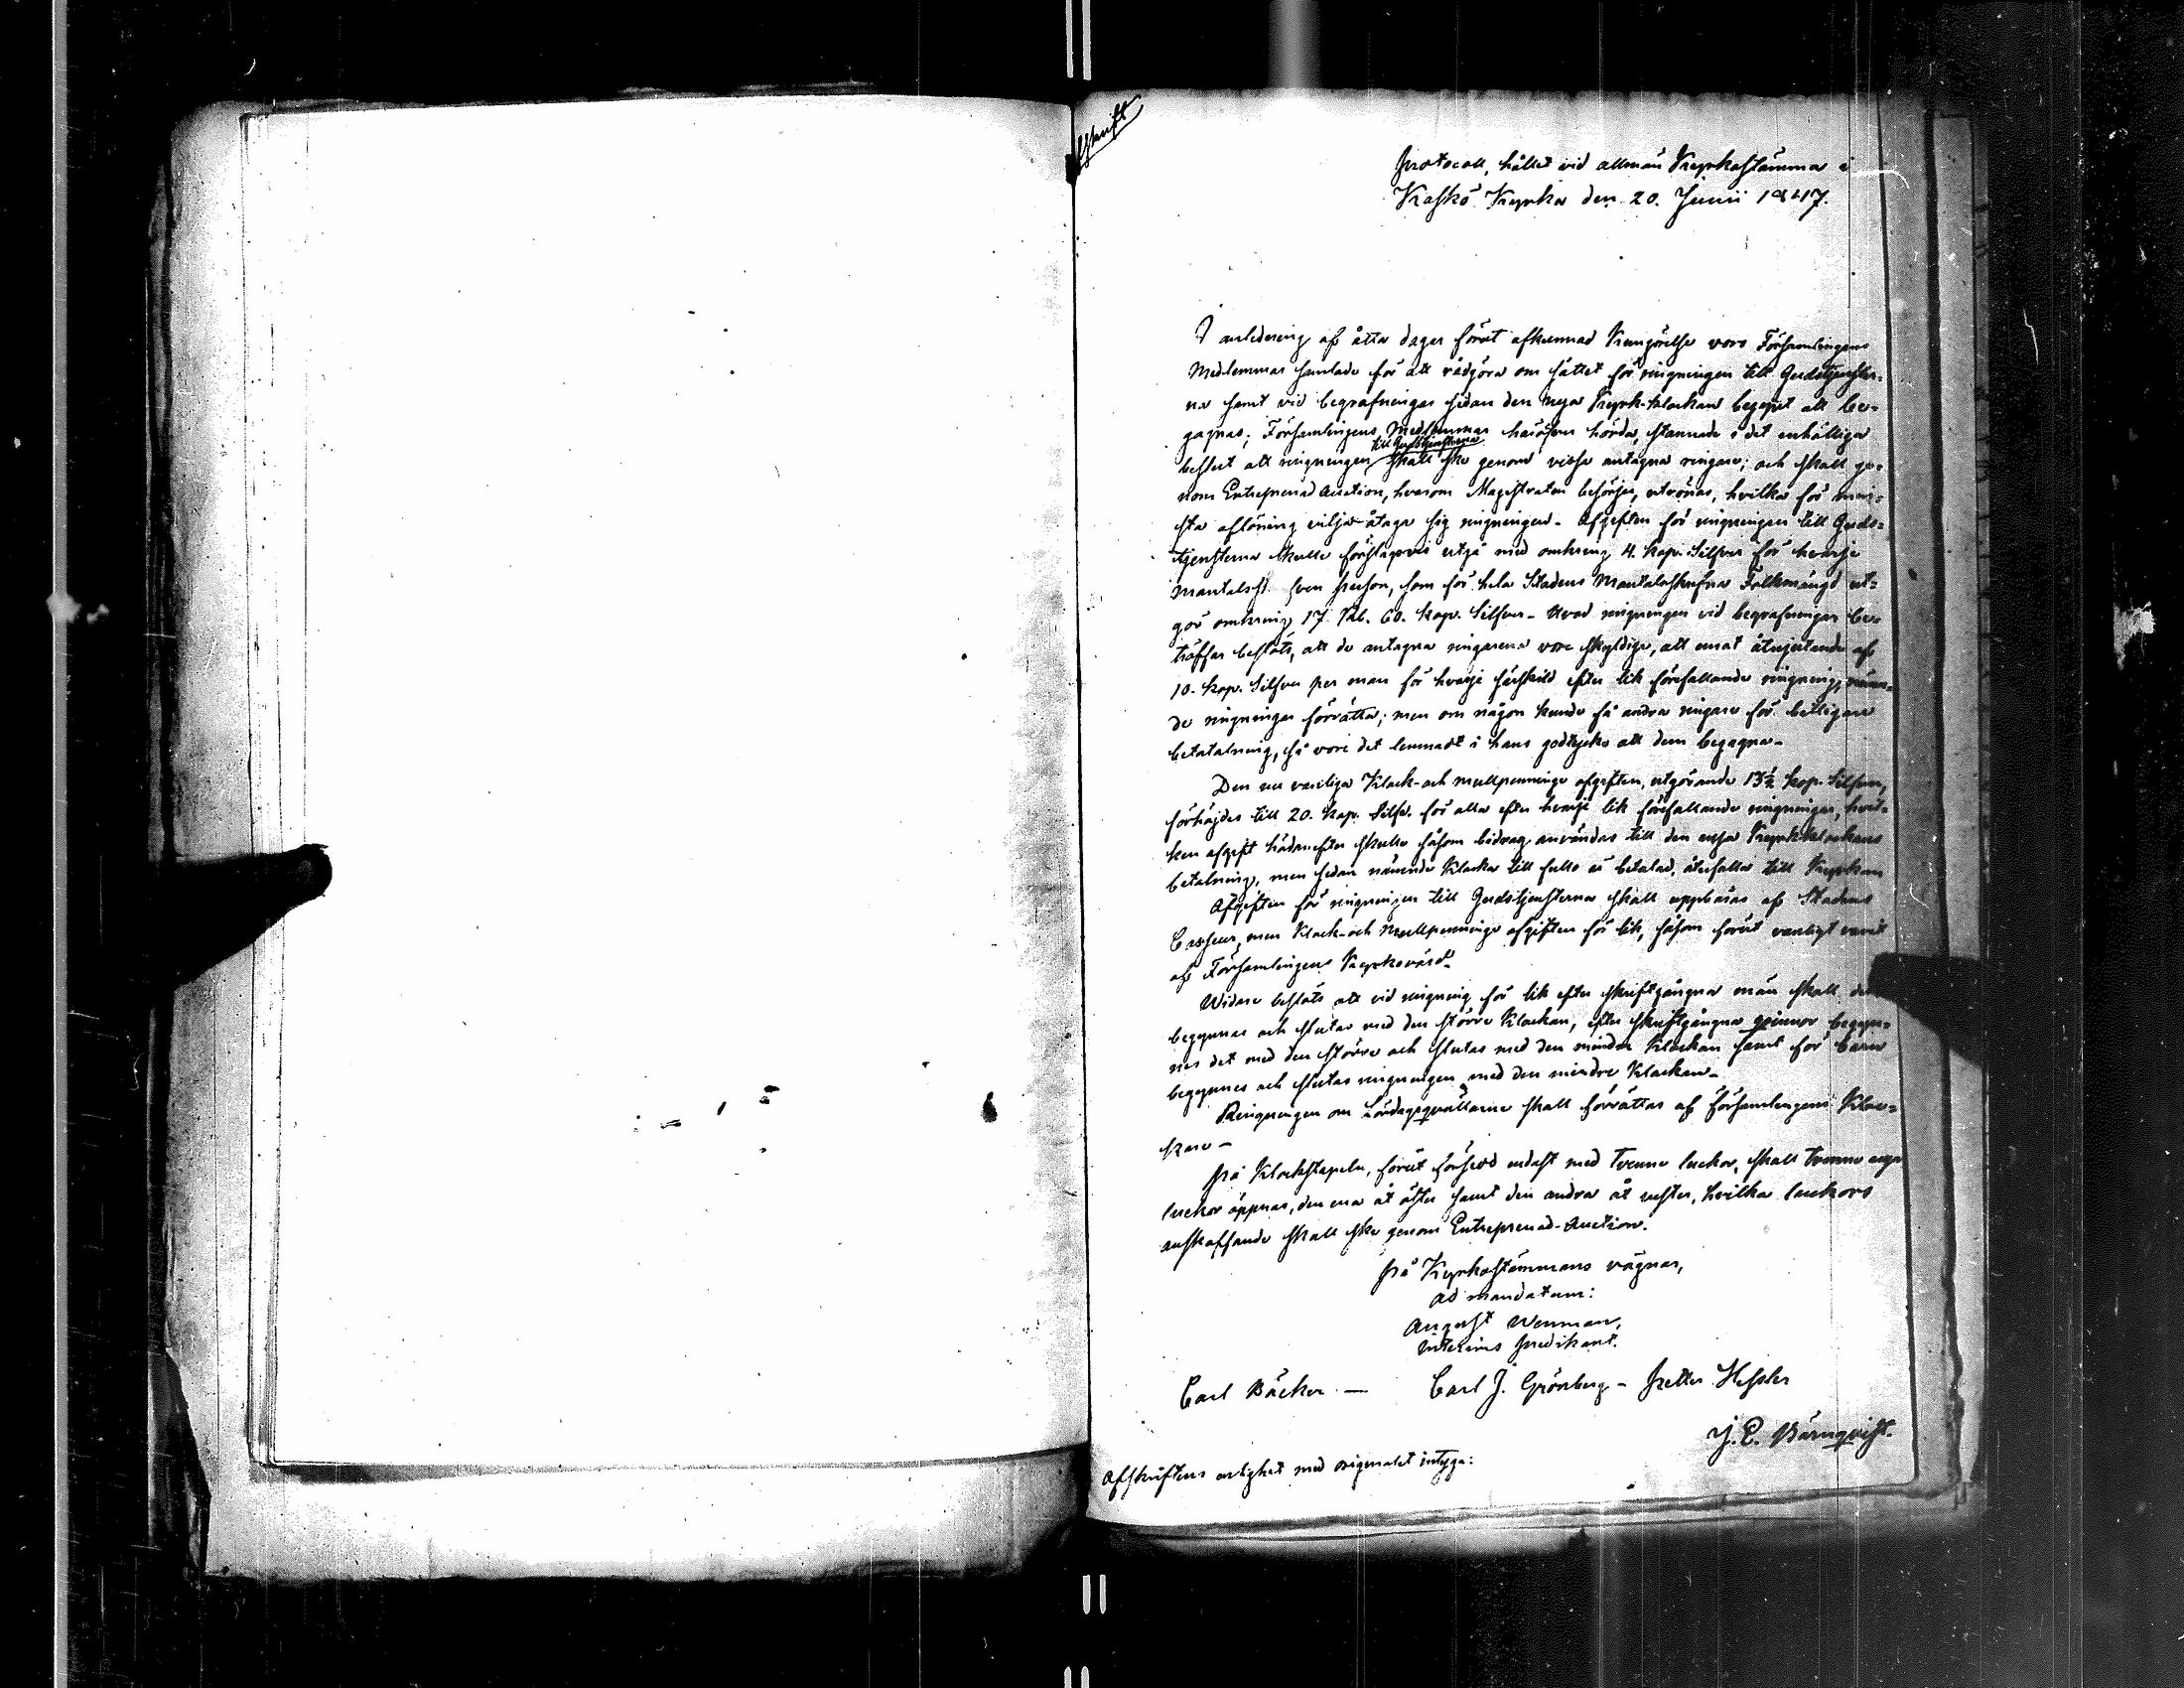 fskrift
Protocoll, hållet vid allmän Kyrkostämma i
Kaskö Kyrka den 20. Junii 1847.
I anledning af åtta dagar förut afkunnad Kungörelse voro Församlingens
Medlemmar samlade för att rådgöra om sättet för ringningen till Gudstjenster-
na samt vid begrafningar sedan den nya Kyrk-klockan begynt att be-
gagnas; Församlingens Medlemmar häröfver hörda, stannade i det enhälliga
till Gudstjensterna
beslut att ringningen skall ske genom vissa antagna ringare; och skall ge-
nom Entreprenad Auction, hvarom Magistraten besörjer, utrönas, hvilka för min-
sta aflöning vilja åtaga sig ringningen. Afgiften för ringningen till Guds-
tjensterna skulle förslagsvis utgå med omkring 4. kop. Silfver för hvarje
mantalsskrifven person, som för hela Stadens Mantalsskrifna Folkmängd ut-
gör omkring 17. Rub. 60. kop. Silfver. Hvad ringningen vid begrafningar be-
träffar beslöts, att de antagna ringarena vore skyldige, att emot åtnjutande af
10. kop. Silfver per man för hvarje särskild efter lik förefallande ringning, nämn-
de ringningar förrätta; men om någon kunde få andra ringare för billigare
betatalning, så vore det lemnadt i hans godtycke att dem begagna.
Den nu vanliga Klock- och mullpenninge afgiften, utgörande 13½ kop. Silfver,
förhöjdes till 20. kop. Silfv. för alla efter hvarje lik förefallande ringningar, hvil-
ken afgift hädanefter skulle såsom bidrag användas till den nya Kyrkklockans
betalning, men sedan nämnde Klocka till fullo är betalad, återfalla till Kyrkan
Afgiften för ringningen till Gudstjensterna skall uppbäras af Stadens
Casseur, men Klock- och Mullpenninge afgiften för lik, såsom förut vanligt varit
af Församlingens Kyrkovärd.
Widare beslöts att vid ringning för lik efter skriftgångna män skall det
begynnas och slutas med den större Klockan, efter skriftgångna qvinnor begyn-
nes det med den större och slutas med den mindre Klockan samt för barn
begynnes och slutas ringningen med den mindre Klockan.
Ringningen om Lördagsqvällarne skall förrättas af Församlingens Kloc-
kare.
På Klockstapeln, förut försedd endast med tvenne luckor, skall tvenne nya
luckor öppnas, den ena åt öster samt den andra åt vester, hvilka luckors
anskaffande skall ske genom Entreprenad-Auction.
På Kyrkostämmans vägnar,
ad mandatum:
August Wenman,
interims predikant.
Carl Bäcker — Carl J. Grönberg - Petter Hessler
J. E. Bärnqvist.
Afskriftens enlighet med originalet intyga: